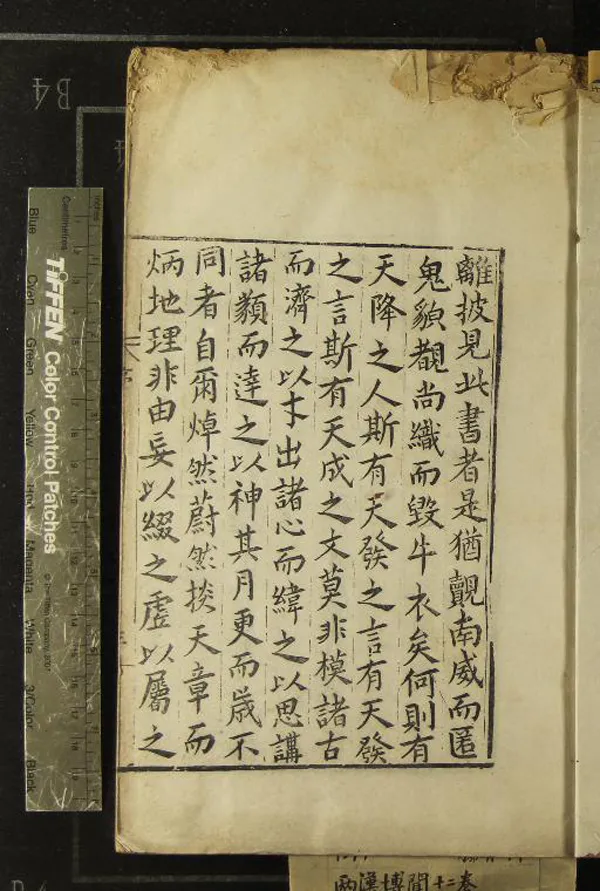 離披見此書者是猶覿南威而匿
鬼貌覩尚織而毀牛衣矣何則有
天降之人斯有天發之言有天發
之言斯有天成之文莫非模諸古
而濟之以才出諸心而緯之以思講
諸類而達之以神其月更而歲不
同者自爾焯然蔚然掞天章而
炳地理非由妄以綴之虛以屬之
兩漢博聞十二卷
TIFFEN Color Control Patches
© The Tiffen Company, 2007
Centimetres
Inches
Blue
Cyan
Green
Yellow
Red
Magenta
White
3/Color
Black
B4